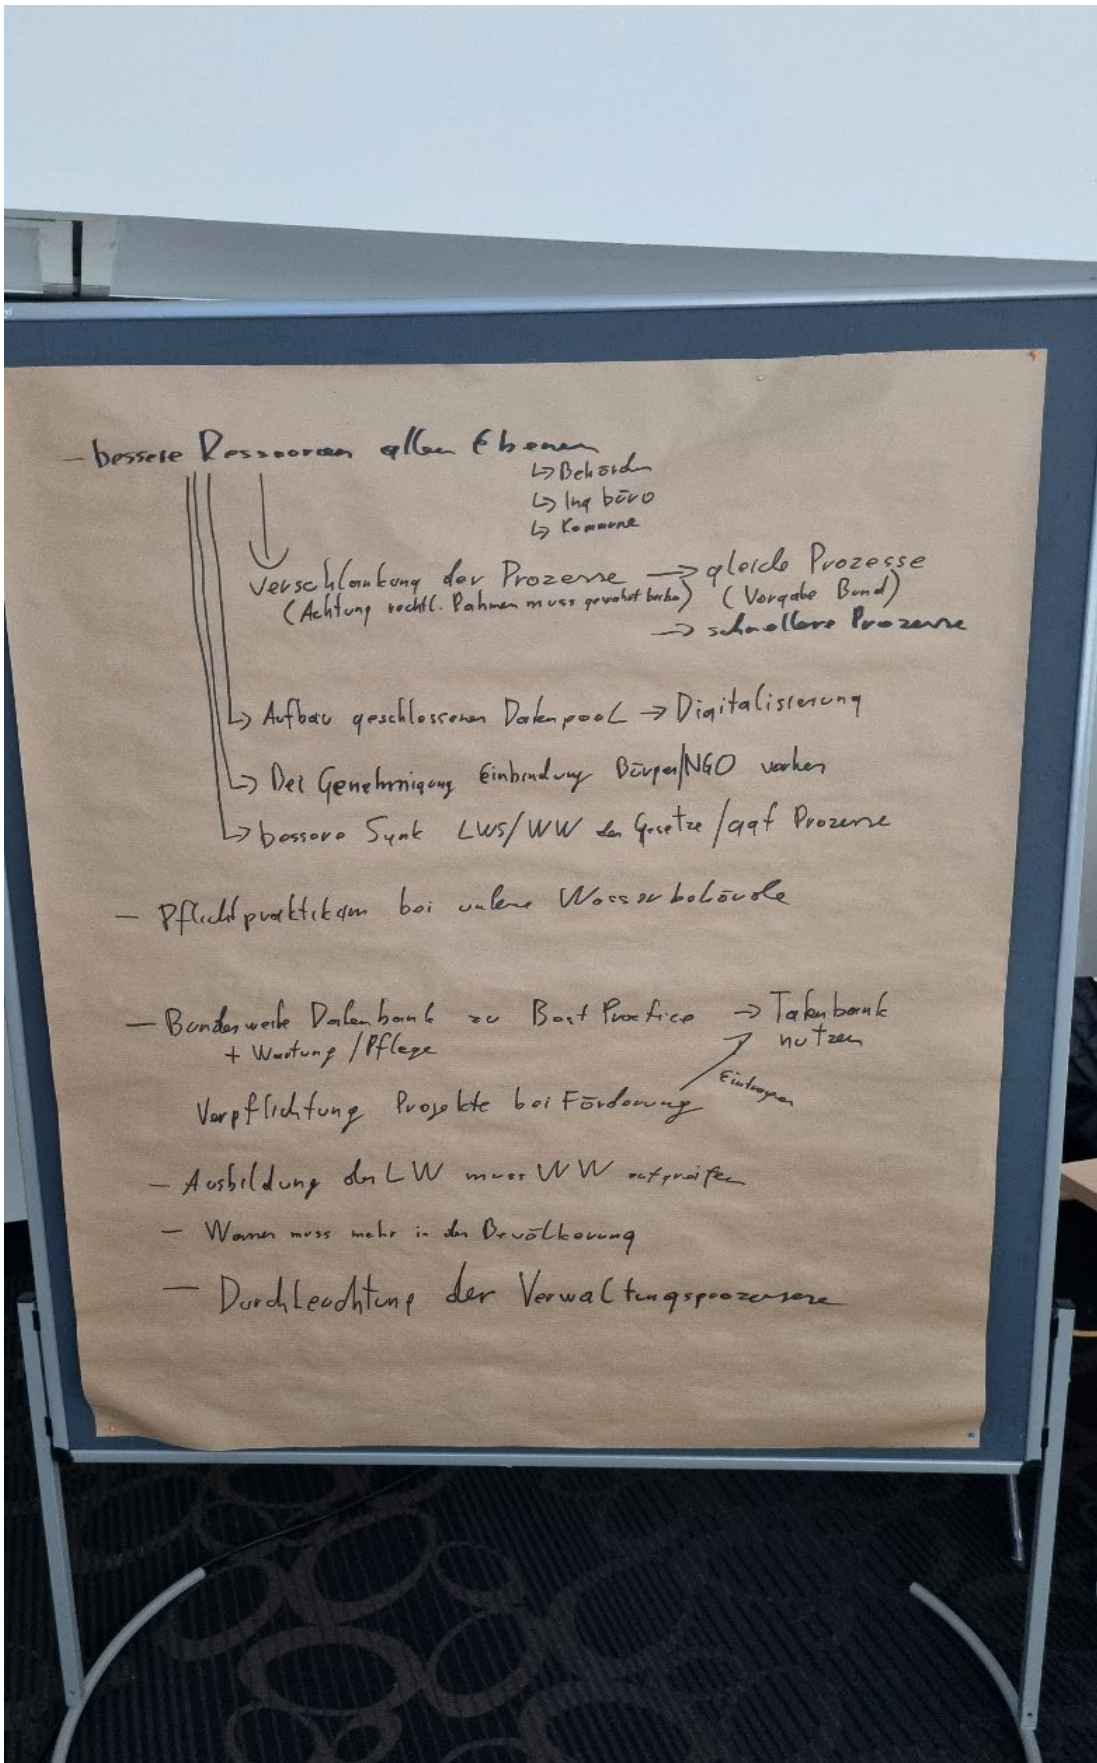 - bessere Ressourcen allen Ebenen
↳ Behörden
↳ Ing büro
↳ Kommune
Verschlankung der Prozesse → gleiche Prozesse
(Achtung rechtl. Rahmen muss gewahrt) (Vorgabe Bund)
→ schnellere Prozesse
↳ Aufbau geschlossenen Datenpool → Digitalisierung
↳ Bei Genehmigung Einbindung Bürger/NGO vorher
↳ bessere Synk LWS/WW der Gesetze /ggf Prozesse
- Pflichtpraktikum bei untere Wasserbehörde
- Bundesweite Datenbank zu Best Practice → Tatenbank
+ Wartung / Pflege nutzen
Eintragen
Verpflichtung Projekte bei Förderung
- Ausbildung der LW muss WW aufgreifen
- muss mehr in der Bevölkerung
- Durchleuchtung der Verwaltungsprozesse